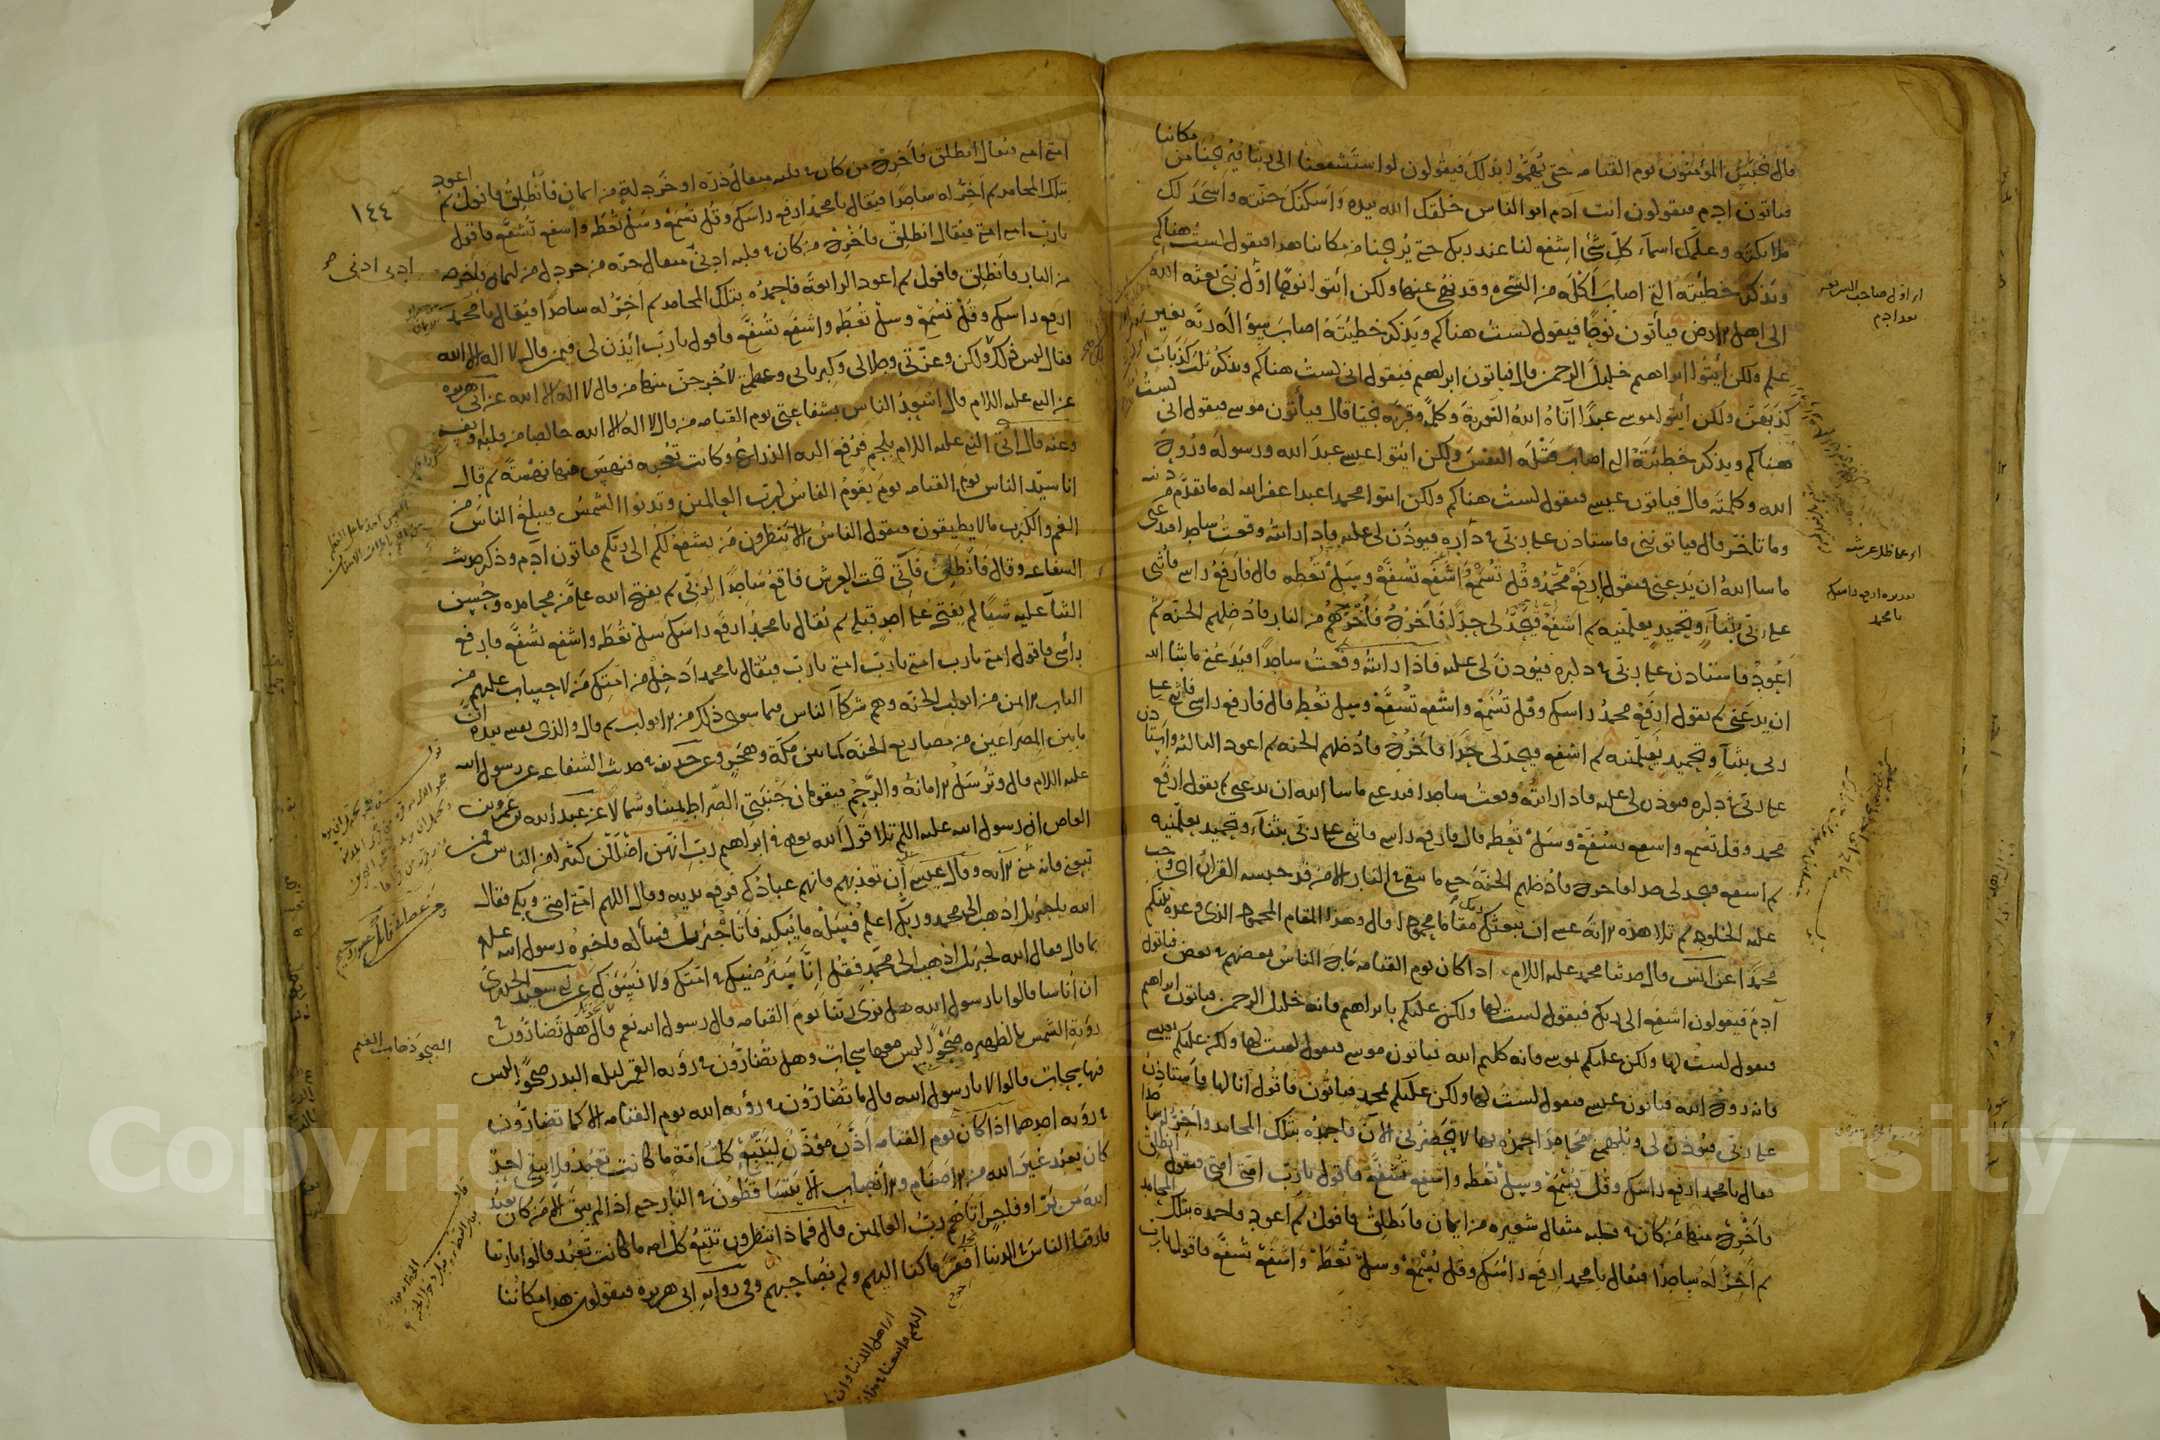 مكاننا
قال يحبس المؤمنون يوم القيامة حتى يهموا بذلك فيقولون لو استشفعنا الى ربنا فيريحنا من
فياتون ادم فيقولون انت آدم ابو الناس خلقك الله بيده وأسكنك جنته واسجد لك
ملائكته وعلمك اسماء كل شئ اشفع لنا عند ربك حتى يريحنا من مكاننا هذا فيقول لست هناكم
ويذكر خطيئته التي اصاب أكله من الشجرة وقد نهي عنها ولكن ائتوا نوحا اول نبي بعثه الله
الى اهل الارض فيأتون نوحا فيقول لست هناكم ويذكر خطيئته اصاب سؤاله ربه بغير
علم ولكن ائتوا ابراهيم خليل الرحمن قال فياتون ابراهيم فيقول اني لست هناكم ويذكر ثلث كذبات
كذبهن ولكن ائتوا موسى عبدا آتاه الله التورية وكلمه وقربه نجيا قال فيأتون موسى فيقول اني لست
هناكم ويذكر خطيئته التي اصاب قتله النفس ولكن ايتوا عيسى عبد الله ورسوله وروح
الله وكلمته قال فياتون عيسى فيقول لست هناكم ولكن ائتوا محمدا عبدا غفر الله له ما تقدم من ذنبه
وما تاخر قال فياتونني فاستاذن على ربي في داره فيؤذن لي عليه فاذا رايته وقعت ساجدا فيدعني
ما شا الله ان يدعني فيقول ارفع محمد وقل تسمع واشفع تشفع وسل تعطه قال فارفع راسي فاثني
على ربي بثناء وتحميد يعلمنيه ثم اشفع فيحد لي حدا فأخرج فأخرجهم من النار فادخلهم الجنة ثم
اعود فاستاذن على ربي في داره فيؤذن لي عليه فاذا رايته وقعت ساجدا فيدعني ما شا الله
ان يدعني ثم يقول ارفع محمد راسك وقل تسمع واشفع تشفع وسل تعط قال فارفع راسي فاثني على
ربي بثناء وتحميد يعلمنيه ثم اشفع فيحد لي حدا فاخرج فادخلهم الجنة ثم اعود الثالثة واستاذن
على ربي في داره فيؤذن لي عليه فاذا رايته وقعت ساجدا فيدعني ما شا الله ان يدعني ثم يقول ارفع
محمد وقل تسمع واشفع تشفع وسل تعطه قال فارفع راسي فاثني على ربي بثناء وتحميد يعلمنيه
ثم اشفع فيحد لي حدا فاخرج فادخلهم الجنة حتى ما يبقى في النار الا من قد حبسه القران اي وجب
عليه الخلود ثم تلا هذه الاية عسى ان يبعثك ربك مقاما محمودا قال وهذا المقام المحمود الذي وعده نبيكم
محمدا عن انس قال حدثنا محمد عليه اللام اذا كان يوم القيامة ماج الناس بعضهم في بعض فياتون
آدم فيقولون اشفع الى ربك فيقول لست لها ولكن عليكم بابراهيم فانه خليل الرحمن فياتون ابراهيم
فيقول لست لها ولكن عليكم بموسى فانه كليم الله فياتون موسى فيقول لست لها ولكن عليكم بعيسى
فانه روح الله فياتون عيسى فيقول لست لها ولكن عليكم بمحمد فياتون فاقول انا لها فاستاذن
على ربي فيؤذن لي ويلهمني محامد احمده بها لا تحضرني الآن فاحمده بتلك المحامد واخر له ساجدا
فيقال يا محمد ارفع راسك وقل تسمع وسل تعطه واشفع تشفع فاقول يا رب امتي امتي فيقول انطلق
فاخرج منها من كان في قلبه مثقال شعيرة من ايمان فانطلق فافعل ثم اعود فاحمده بتلك المحامد
ثم اخر له ساجدا فيقال يا محمد ارفع رأسك وقل تسمع وسل تعط واشفع تشفع فاقول يا رب
ای اول صاحب الشرائع
بعد ادم
یا محمد
امتي امتي فيقال انطلق فاخرج من كان في قلبه مثقال ذرة او خردلة من ايمان فانطلق فافعل ثم اعود
بتلك المحامد ثم اخر له ساجدا فيقال يا محمد ارفع راسك وقل تسمع وسل تعطه واشفع تشفع فاقول
١٤٤
يا رب امتي امتي فيقال انطلق فاخرج من كان في قلبه ادنى مثقال حبة من خردل من ايمان فاخرجه
ادنى ادنى
من النار فانطلق فافعل ثم اعود الرابعة فاحمده بتلك المحامد ثم اخر له ساجدا فيقال يا محمد
ارفع راسك وقل تسمع وسل تعطه واشفع تشفع فاقول يا رب ائذن لي فيمن قال لا اله الا الله
فقال ليس ذلك لك ولكن وعزتي وجلالي وكبريائي وعظمتي لأخرجن منها من قال لا اله الا الله عن ابي هريرة
عن النبي عليه اللام قال اسعد الناس بشفاعتي يوم القيامة من قال لا اله الا الله خالصا من قلبه او نفسه
وعنه قال اتي النبي عليه اللام بلحم فرفع اليه الذراع وكانت تعجبه فنهس منها نهسة ثم قال
انا سيد الناس يوم القيامة يوم يقوم الناس لرب العالمين وتدنوا الشمس فيبلغ الناس من
الغم والكرب ما لا يطيقون فيقول الناس الا تنظرون من يشفع لكم الى ربكم فياتون آدم وذكر حديث
الشفاعة وقال فأنطلق فآتي تحت العرش فاقع ساجدا لربي ثم يفتح الله علي من محامده وحسن
الثناء عليه شيئا لم يفتحه على احد قبلي ثم يقال يا محمد ارفع رأسك سل تعط واشفع تشفع فارفع
رأسي فاقول امتي يا رب امتي يا رب امتي يا رب فيقال يا محمد ادخل من امتك من لا حساب عليهم من
الباب الايمن من ابواب الجنة وهم شركاء الناس فيما سوى ذلك من الابواب ثم قال والذي نفسي بيده ان
ما بين المصراعين من مصاريع الجنة كما بين مكة وهجر وعن حذيفة في حديث الشفاعة عن رسول الله
عليه اللام قال وترسل الامانة والرحم فيقومان جنبتي الصراط يمينا وشمالا عن عبد الله بن عمرو بن
العاص ان رسول الله عليه اللم تلا قول الله تعالى في ابراهيم رب انهن اضللن كثيرا من الناس فمن
تبعني فانه مني الآية وقال عيسى ان تعذبهم فانهم عبادك فرفع يديه وقال اللهم امتي امتي وبكى فقال
الله يا جبريل اذهب الى محمد وربك اعلم فسله ما يبكيه فأتاه جبريل فسأله فاخبره رسول الله عليه
بما قال فقال الله لجبريل اذهب الى محمد فقل انا سنرضيك في امتك ولا نسوءك عن ابي سعيد الخدري
ان أناسا قالوا يا رسول الله هل نرى ربنا يوم القيامة قال رسول الله نعم قال هل تضارون في
الصحو ذهاب الغيم
رؤية الشمس بالظهيرة صحوا ليس معها سحاب وهل تضارون في رؤية القمر ليلة البدر صحوا ليس
فيها سحاب قالوا لا يا رسول الله قال ما تضارون في رؤية الله يوم القيامة الا كما تضارون
في رؤية احدهما اذا كان يوم القيامة اذن مؤذن ليتبع كل امة ما كانت تعبد فلا يبقى احد
كان يعبد غير الله من الاصنام والانصاب الا يتساقطون في النار حتى اذا لم يبق الا من كان يعبد
الله من بر او فاجر اتاهم رب العالمين قال فماذا تنظرون تتبع كل امة ما كانت تعبد قالوا يا ربنا
فارقنا الناس في الدنيا افقر ما كنا اليهم ولم نصاحبهم وفي رواية ابي هريرة فيقولون هذا مكاننا
Copyright © King Saud University